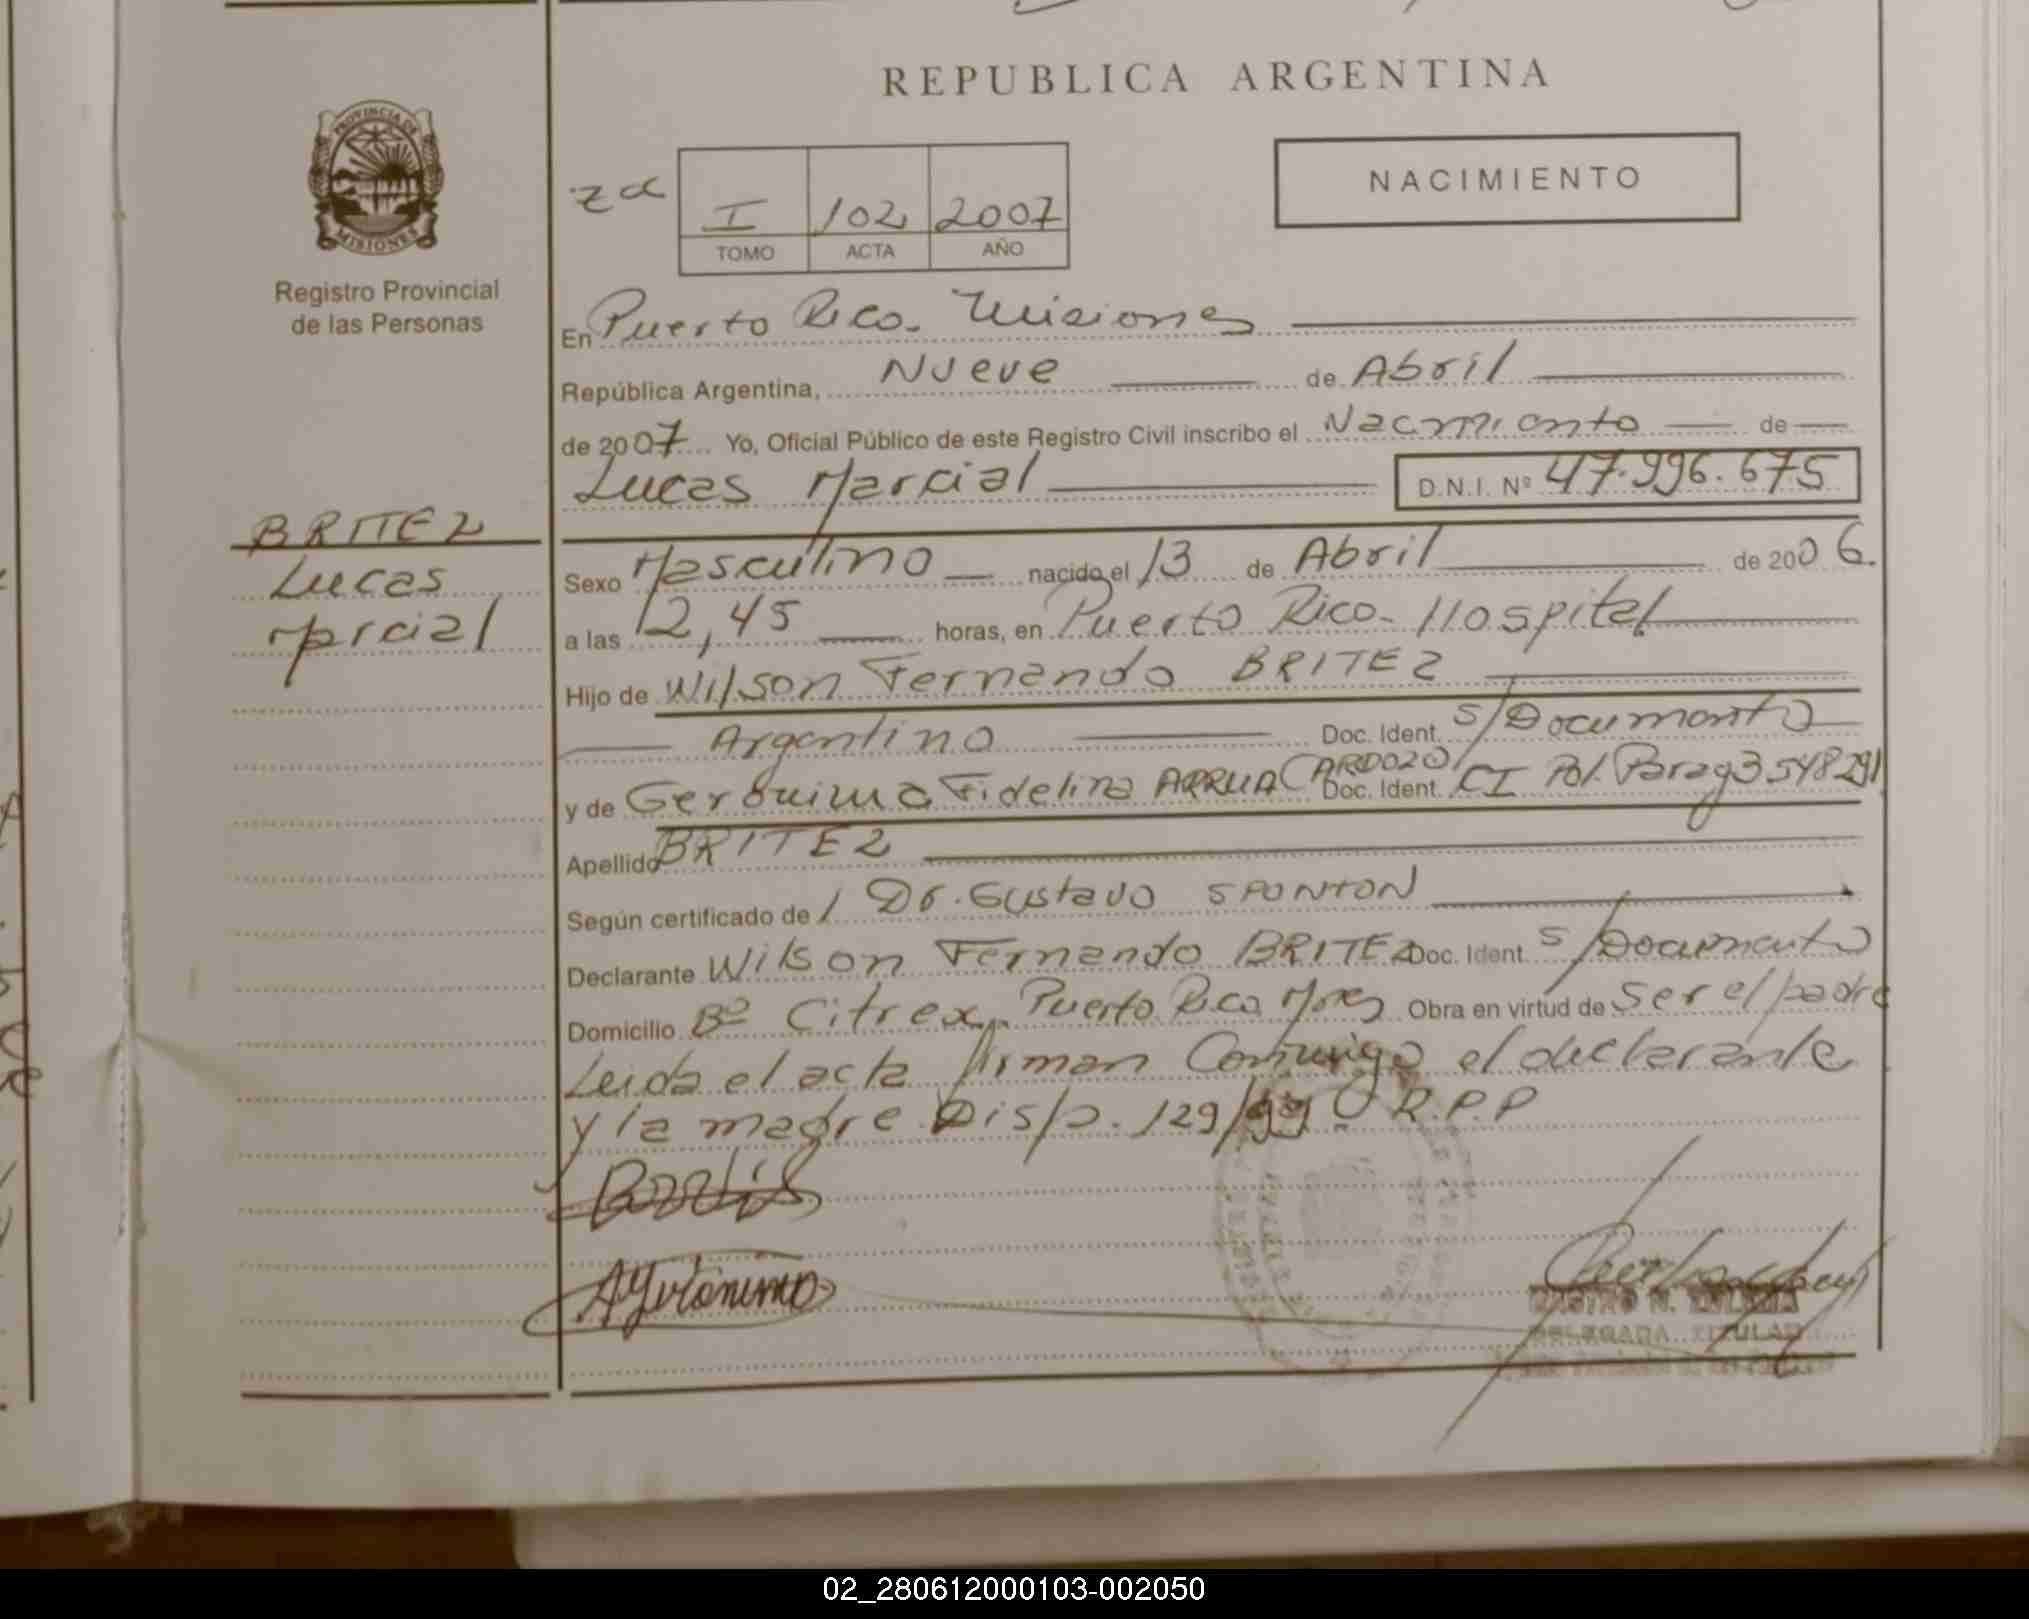 REPUBLICA ARGENTINA
PROVINCIA DE
MISIONES
Registro Provincial
de las Personas
NACIMIENTO
I 102 2007
TOMO ACTA AÑO
En Puerto Rico. Misiones
República Argentina, Nueve de Abril
de 2007 Yo, Oficial Público de este Registro Civil inscribo el Nacimiento de
Lucas Marcial D.N.I. Nº 47.996.675
BRITEZ
Lucas
Marcial
Sexo Masculino nacido el 13 de Abril de 2006.
a las 12,45 horas, en Puerto Rico. Hospital
Hijo de Wilson Fernando BRITEZ
Argentino Doc. Ident. S/Documento
y de Gerónima Fidelina ARRUA CARDOZO Doc. Ident. CI Pol. Parag 3548291
Apellido BRITEZ
Según certificado de Dr. Gustavo SPONTON
Declarante Wilson Fernando BRITEZ Doc. Ident. S/Documento
Domicilio Bº Citrex, Puerto Rico Mnes Obra en virtud de Ser el padre
Leida el acta firman Conmigo el declarante
y la madre Disp. 129/99 R.P.P
DELEGADA TITULAR
02_280612000103-002050